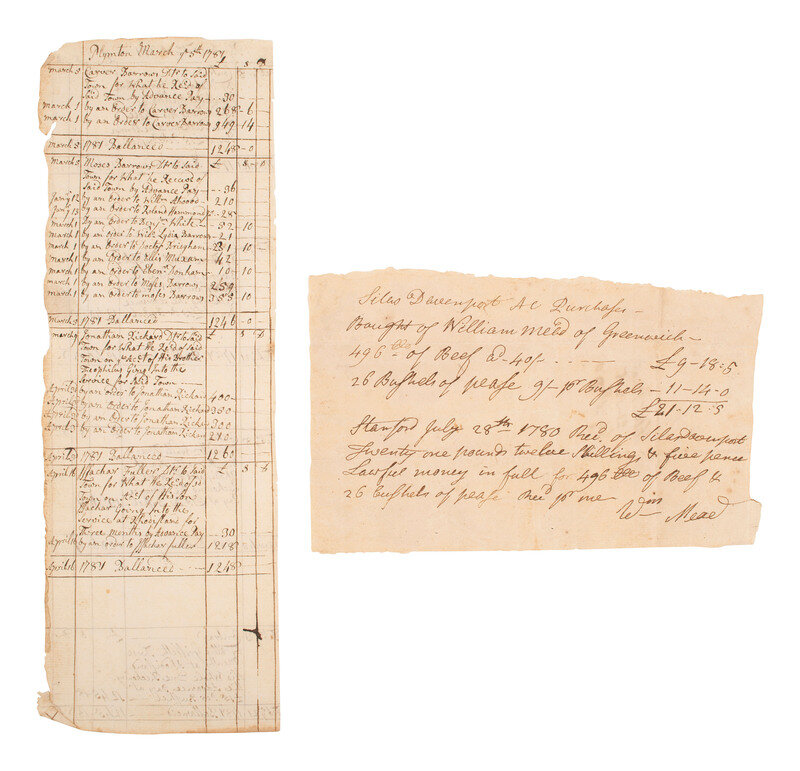 Plymton March ye 5th 1781
£ s d
march 5 Carver Barrows Dtr to Said
Town for What he Recd of
Said Town by Advance Pay - - 30 -
march 1 by an Order to Carver Barrows 268 - 6
march 1 by an Order to Carver Barrows 949 - 14
march 5 1781 Ballanced 1248 - 0
march 5 Moses Barrows Dtr to Said £ s - d
Town for What he Received of
Said Town by Advance Pay - - 36
Jany 12 by an Order to Willm Atwood 210
Jany 13 by an Order to Roland Hammond - 28
march 1 By an Order to Benjn White - 82 10
march 1 by an order to Wido Lydia Barrows - 21
march 1 by an Order to Doctor Briegham 231 10
march 1 by an Order to Ellis Maxam 42
march 1 by an Order to Ebenr Donham 10 10
march 1 by an Order to Moses Barrows 259
march 1 by an Order to moses Barrows 355 10
march 5 1781 Ballanced 1246 - 0
march 9 Jonathan Richard Dtr to said £ s d
Town for What he Recd of said
Town on ye Act of His Brother
Theophilus Going Into the
Service for said Town
April by an order to Jonathan Richard 400
April by an Order to Jonathan Richard 350
April by an Order to Jonathan Richard 300
April by an Order to Jonathan Richard
210
April 1781 Ballanced 1260
April 16 Issachar Fuller Dtr to Said £ s d
Town for What he Recd of sd
Town on Act of His son
Issachar Going Into the
Service at Rhod Island for
Three months by Advance Pay - 30
April 16 by an order to Issachar fuller 1218
April 16 1781 Ballanced 1248
Silas Davenport A C Purchaser
Bought of William Mead of Greenwich
496 lb of Beef @ 40/ - £9 - 18 = 5
26 Bushels of pease 9/ pr Bushels - 11 - 14 - 0
£21 - 12 = 5
Stanford July 28th 1780 Recd of Silas Davenport
Twenty one pounds twelve Shillings & five pence
Lawful money in full for 496 lb of Beef &
26 bushels of pease Recd pr me
Wm Mead